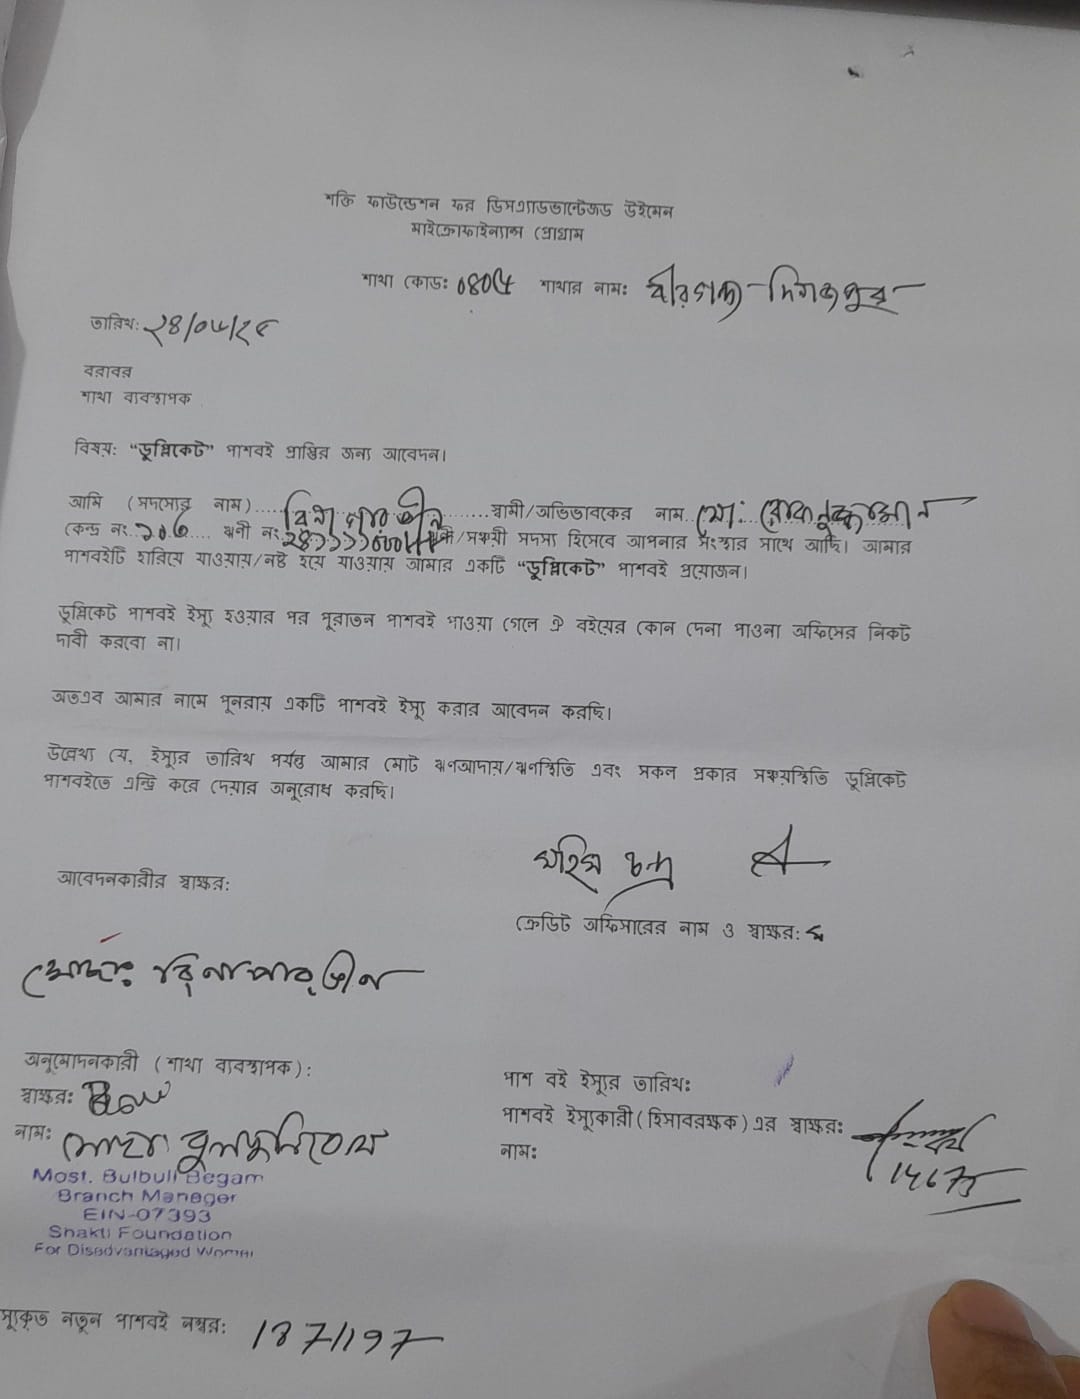 শক্তি ফাউন্ডেশন ফর ডিসএ্যাডভান্টেজড উইমেন
মাইক্রোফাইন্যান্স প্রোগ্রাম
শাখা কোডঃ শাখার নামঃ বীরগঞ্জ-দিনাজপুর
তারিখঃ ২৪/০৮/২৫
বরাবর
শাখা ব্যবস্থাপক
বিষয়ঃ "ডুপ্লিকেট" পাশবই প্রাপ্তির জন্য আবেদন।
আমি (সদস্যের নাম)..... রিনা পারভীন ......স্বামী/অভিভাবকের নাম..মোঃ
কেন্দ্র নং.১০৬.... ঋনী নং ঋনী/সঞ্চয়ী সদস্য হিসেবে আপনার সংস্থার সাথে আছি। আমার
পাশবইটি হারিয়ে যাওয়ায়/নষ্ট হয়ে যাওয়ায় আমার একটি "ডুপ্লিকেট" পাশবই প্রয়োজন।
ডুপ্লিকেট পাশবই ইস্যু হওয়ার পর পুরাতন পাশবই পাওয়া গেলে ঐ বইয়ের কোন দেনা পাওনা অফিসের নিকট
দাবী করবো না।
অতএব আমার নামে পুনরায় একটি পাশবই ইস্যু করার আবেদন করছি।
উল্লেখ্য যে, ইস্যুর তারিখ পর্যন্ত আমার মোট ঋণআদায়/ঋণস্থিতি এবং সকল প্রকার সঞ্চয়স্থিতি ডুপ্লিকেট
পাশবইতে এন্ট্রি করে দেয়ার অনুরোধ করছি।
মহিম চন্দ্র
আবেদনকারীর স্বাক্ষর:
ক্রেডিট অফিসারের নাম ও স্বাক্ষর:
মোছাঃ রিনা পারভীন
অনুমোদনকারী (শাখা ব্যবস্থাপক):
পাশ বই ইস্যুর তারিখঃ
স্বাক্ষরঃ
পাশবই ইস্যুকারী(হিসাবরক্ষক)এর স্বাক্ষরঃ
নামঃ
নামঃ
Most. Bulbuli Begam
Branch Manager
EIN-07393
Shakti Foundation
For Disadvantaged Women
স্যুকৃত নতুন পাশবই নম্বরঃ 187/197